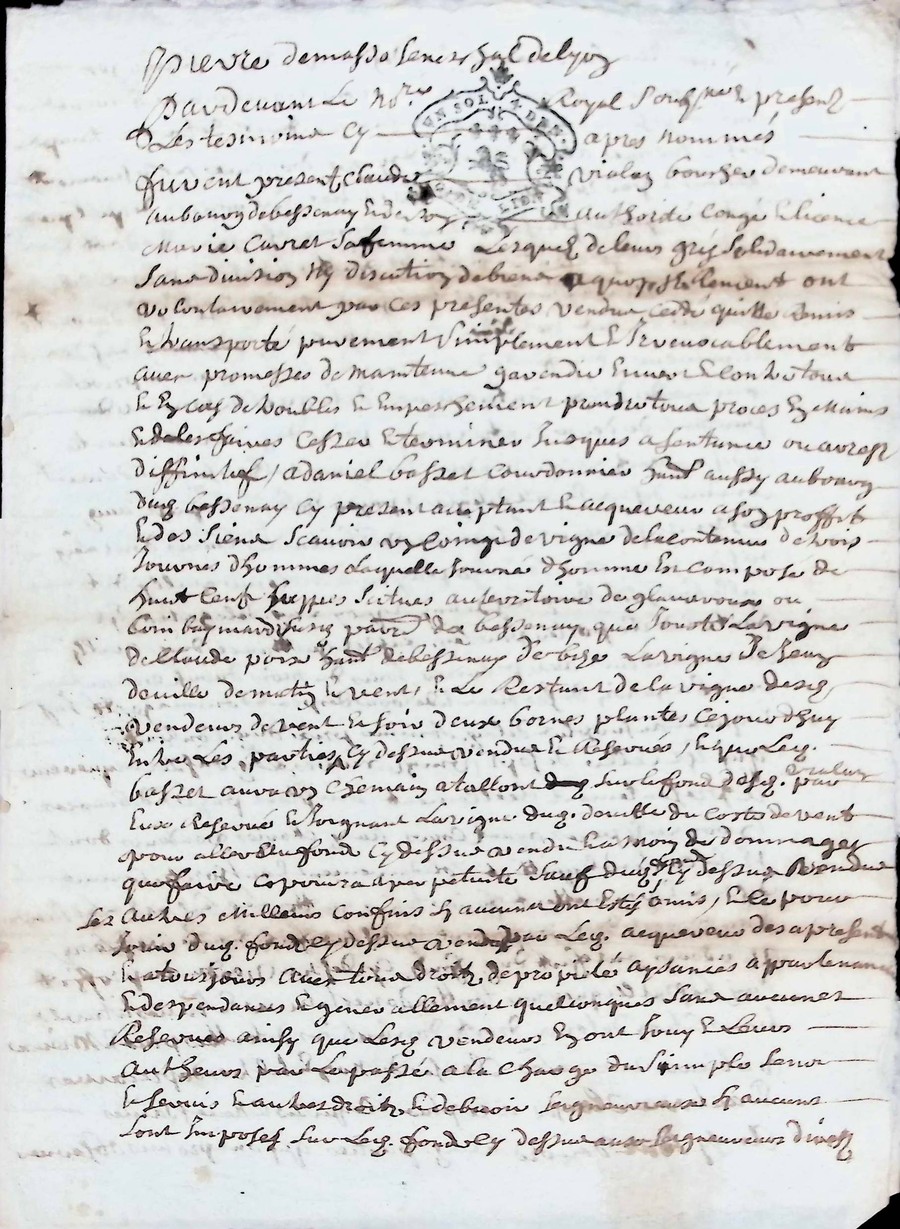 Pierre demasso senechal de lyon
Pardevant Le No.re Royal Soubz.né Et presentz
Les tesmoins Cy apres nommés
furent present Claude vialay boucher demeurant
au bourg de bessenay Et de son authorité Congé Et licence
Marie Carret Sa femme Lesquelz de leurs grés Solidairement
Sans division Ny discution de biens a quoy ont
volontairement par ces presentes vendu, ceddé quitté Remis
Et transporté purement Simplement Et Irrevocablement
avec promesses de Maintenue garendie Envers Et Contre tous
Et En Cas de troubles Et Empeschement prendre tous proces En Mains
Et de les faires Cesser Et terminer Jusques a sentance ou arrest
diffinitif, a daniel basset Courdonnier hant aussy au bourg
dud bessenay Cy present aceptant Et acquereur a son proffit
Et des Siens Scavoir de vigne de la contenue de trois
Journes d'hommes Laquelle Journé d'homme Est Composé de
huit Cent Situes au territoire de glaveroux ou
parr. de bessenay que Jouste La vigne
de Claude hant de bessenay de bize La vigne de Jean
deville de matin Et vent, Et Le Restant de la vigne desd
vendeurs de vent Et Soir deux bornes plantes Cejourdhuy
Entre Les parties Cy dessus vendue Et Reservés, Et que Led.
basset aura un Chemain sur le fond desd. vialay par
Eux Reservé Et Joignant La vigne dud. deville du Costé de vent
pour aller au fond Cy dessus vendu Le moin de dommages
que faire Ce poura a perpetuité Sauf Cy dessus vendue
Les autres Milleurs Confins Sy aucuns ont Esté omis, Et le pour
Jouir dud. fond Cy dessus vendu par Led. acquereur des a present
Et a tousjours avec tous droitz de propriété aysances appartenances
Et despendances Et generallement quelconques Sans aucunes
Reserves ainsy que Lesd vendeurs En ont Jouy Et Leurs
Autheurs par Le passé a la Charge du Simple Cens
Et Servis Et autres droitz Et debvoir Seigneuriaux Sy aucuns
Sont Imposes Sur Led. fond Cy dessus aux Seigneurs directz